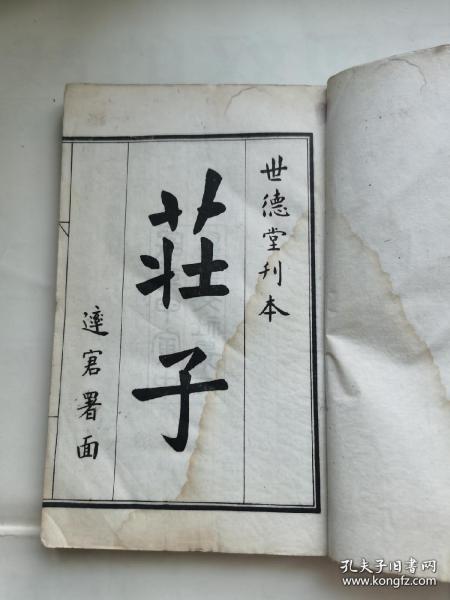 世德堂刊本
莊子
達窘署面
孔夫子旧书网
www.kongfz.com